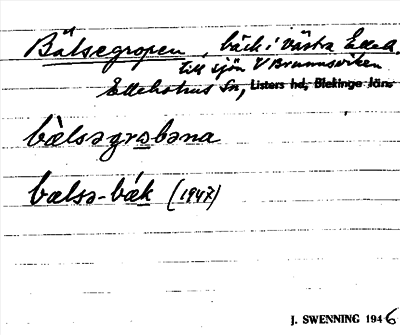 Bälsegropen, bäck i västra Elleh.
till sjön V Brunnsviken
Elleholms Sn, Listers hd, Blekinge län
bælsəgrɷbəna
bælsə-bæk (1947)
J. SWENNING 1946